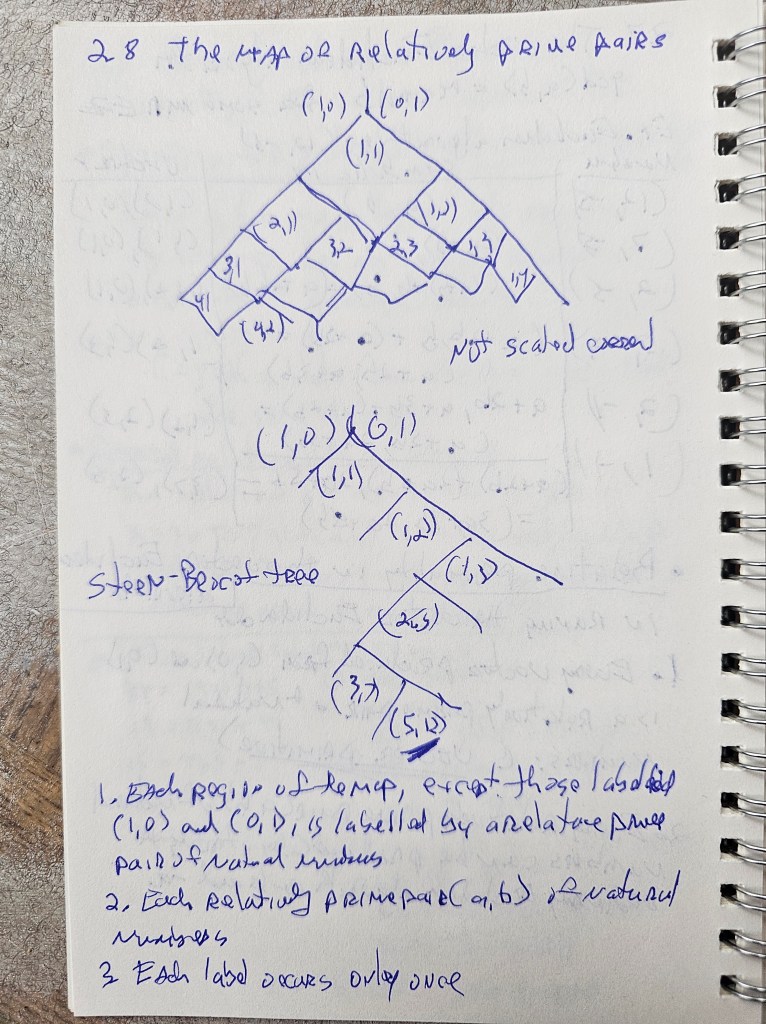 28 The MAP OF Relatively prime pairs
(1,0) (0,1)
(1,1)
(2,1) (1,2)
3,1 3,2 2,3 1,3
4,1 (4,2) 1,4
Not scaled
(1,0) (0,1)
(1,1)
(1,2)
(1,3)
Stern-Brocot tree
(3,7)
(5,12)
1. Each region of the map, except those labelled
(1,0) and (0,1), is labelled by a relative prime
pair of natural numbers
2. Each Relatively prime pair (a,b) of natural
numbers
3 Each label occurs only once